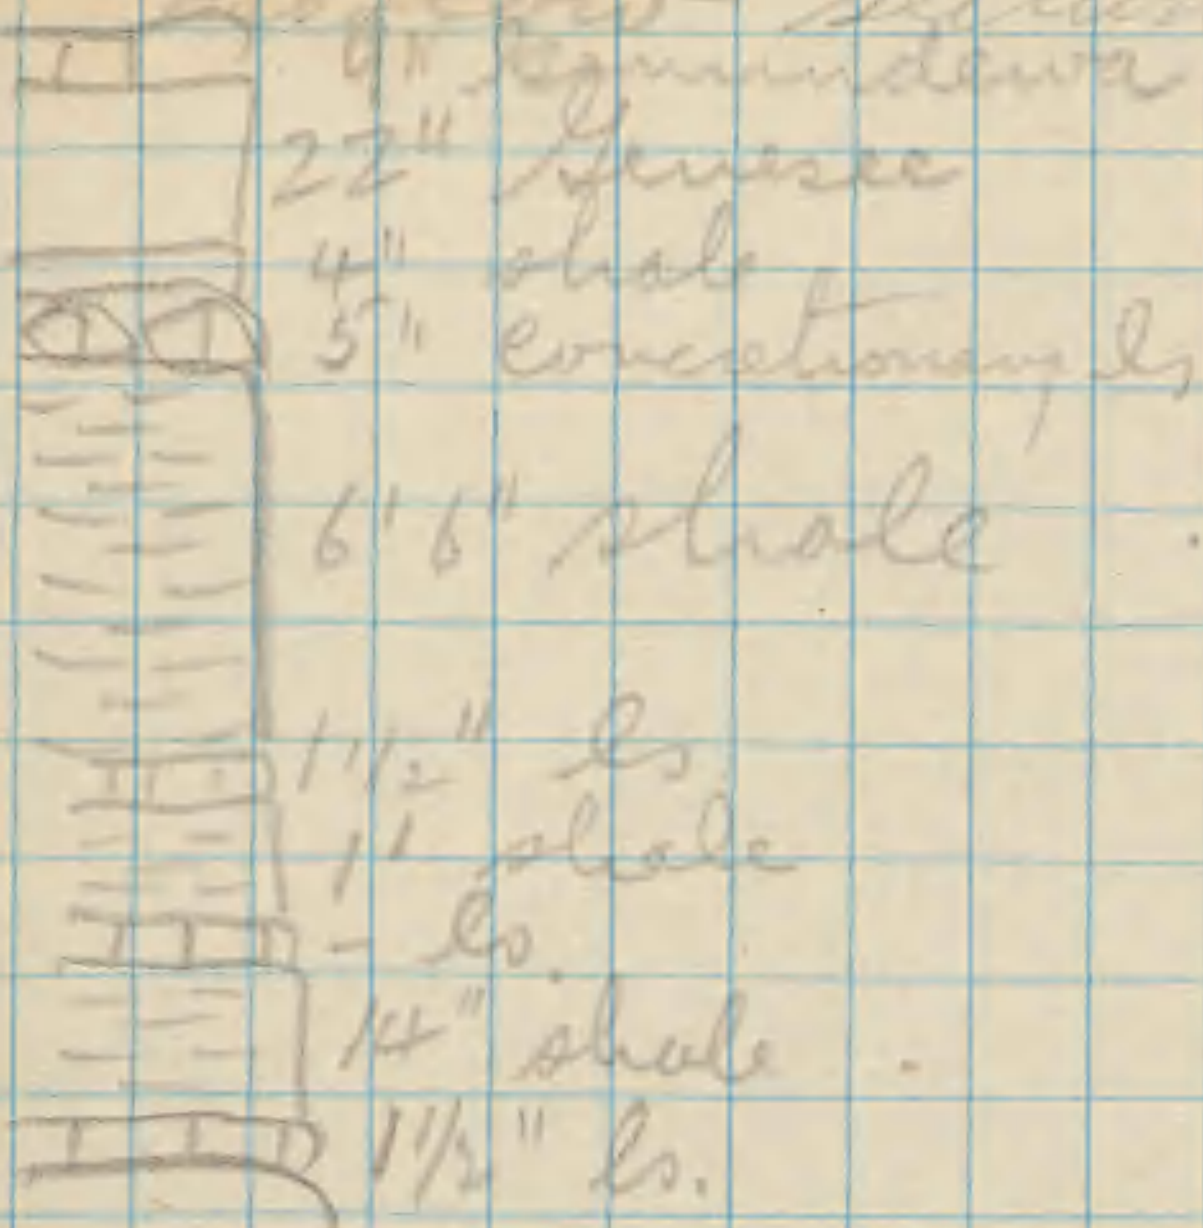 series
9" Genundewa
22" Genesee
4" shale
5" concretionary ls
6'6" shale
1 1/2" ls
1' shale
- ls.
14" shale
1 1/2" ls.